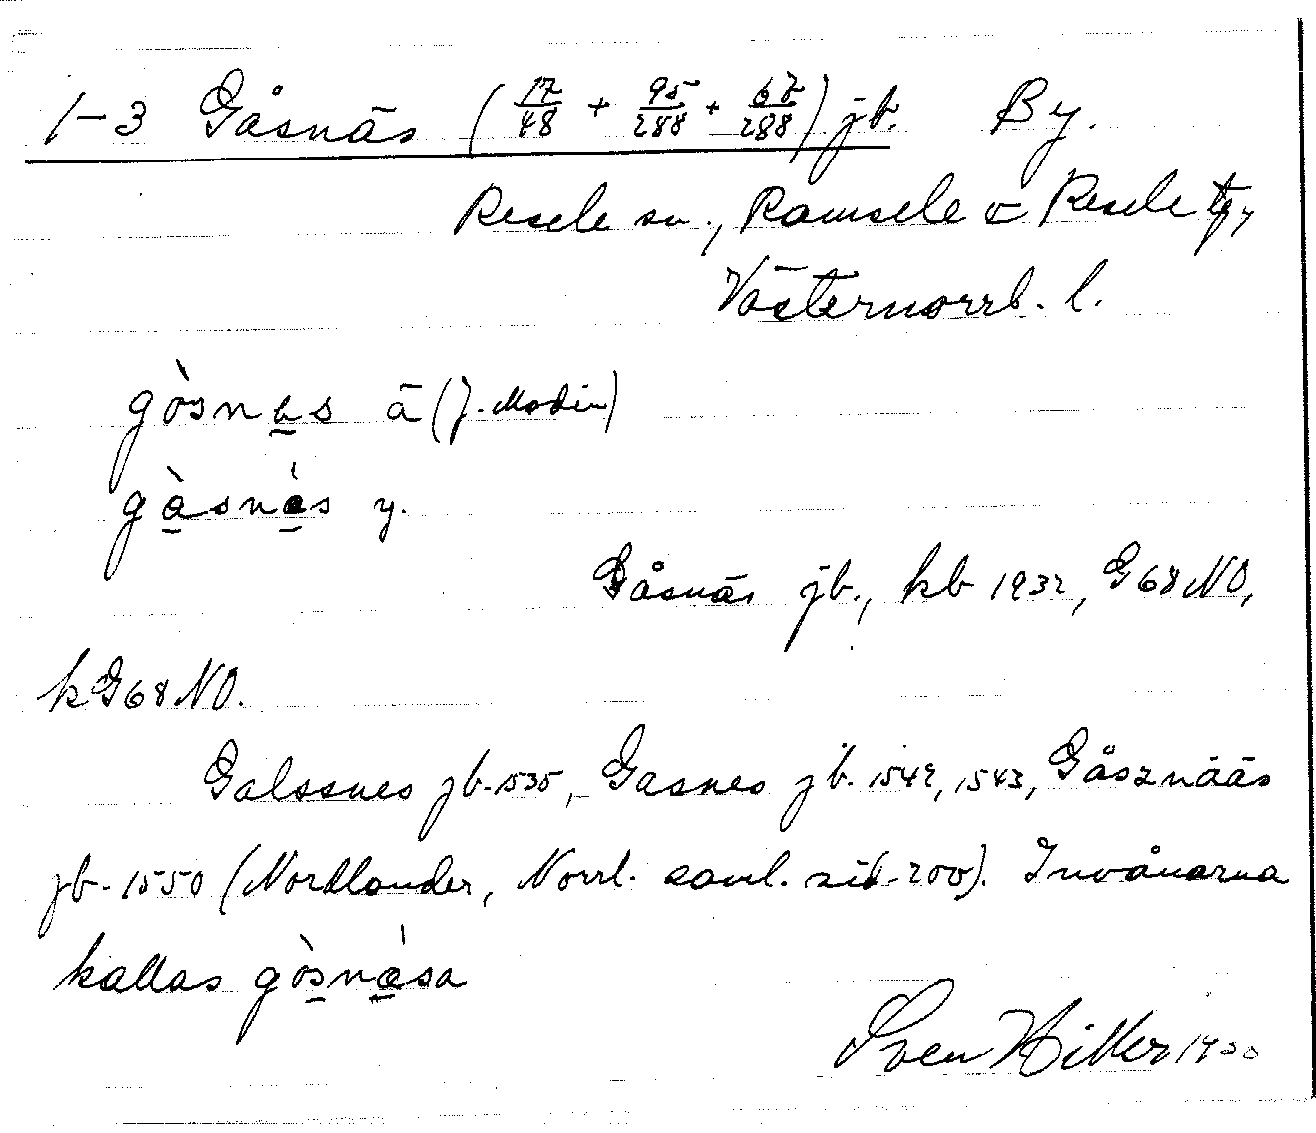 1-3 Gåsnäs (17/48 + 95/288 + 67/288) jb. By.
Resele sn., Ramsele o Resele tg,
Västernorrl. l.
gòsnes ä (J. Modin)
gàsnás y.
Gåsnäs jb., kb 1932, G68NO,
kG68NO.
Galssnes jb. 1535, Gasnes jb. 1542, 1543, Gåsznääs
jb. 1550 (Nordlander, Norrl. saml. sid. 200). Invånarna
kallas gòsnǽsa
Sven Hiller